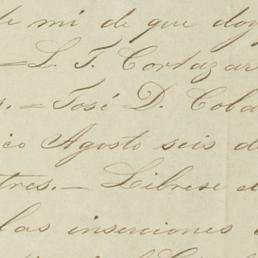 de mi de que doy
=L. T. Cortazar
s.=José D. Coba
co Agosto seis d
tres.— Librese e
las inserciones